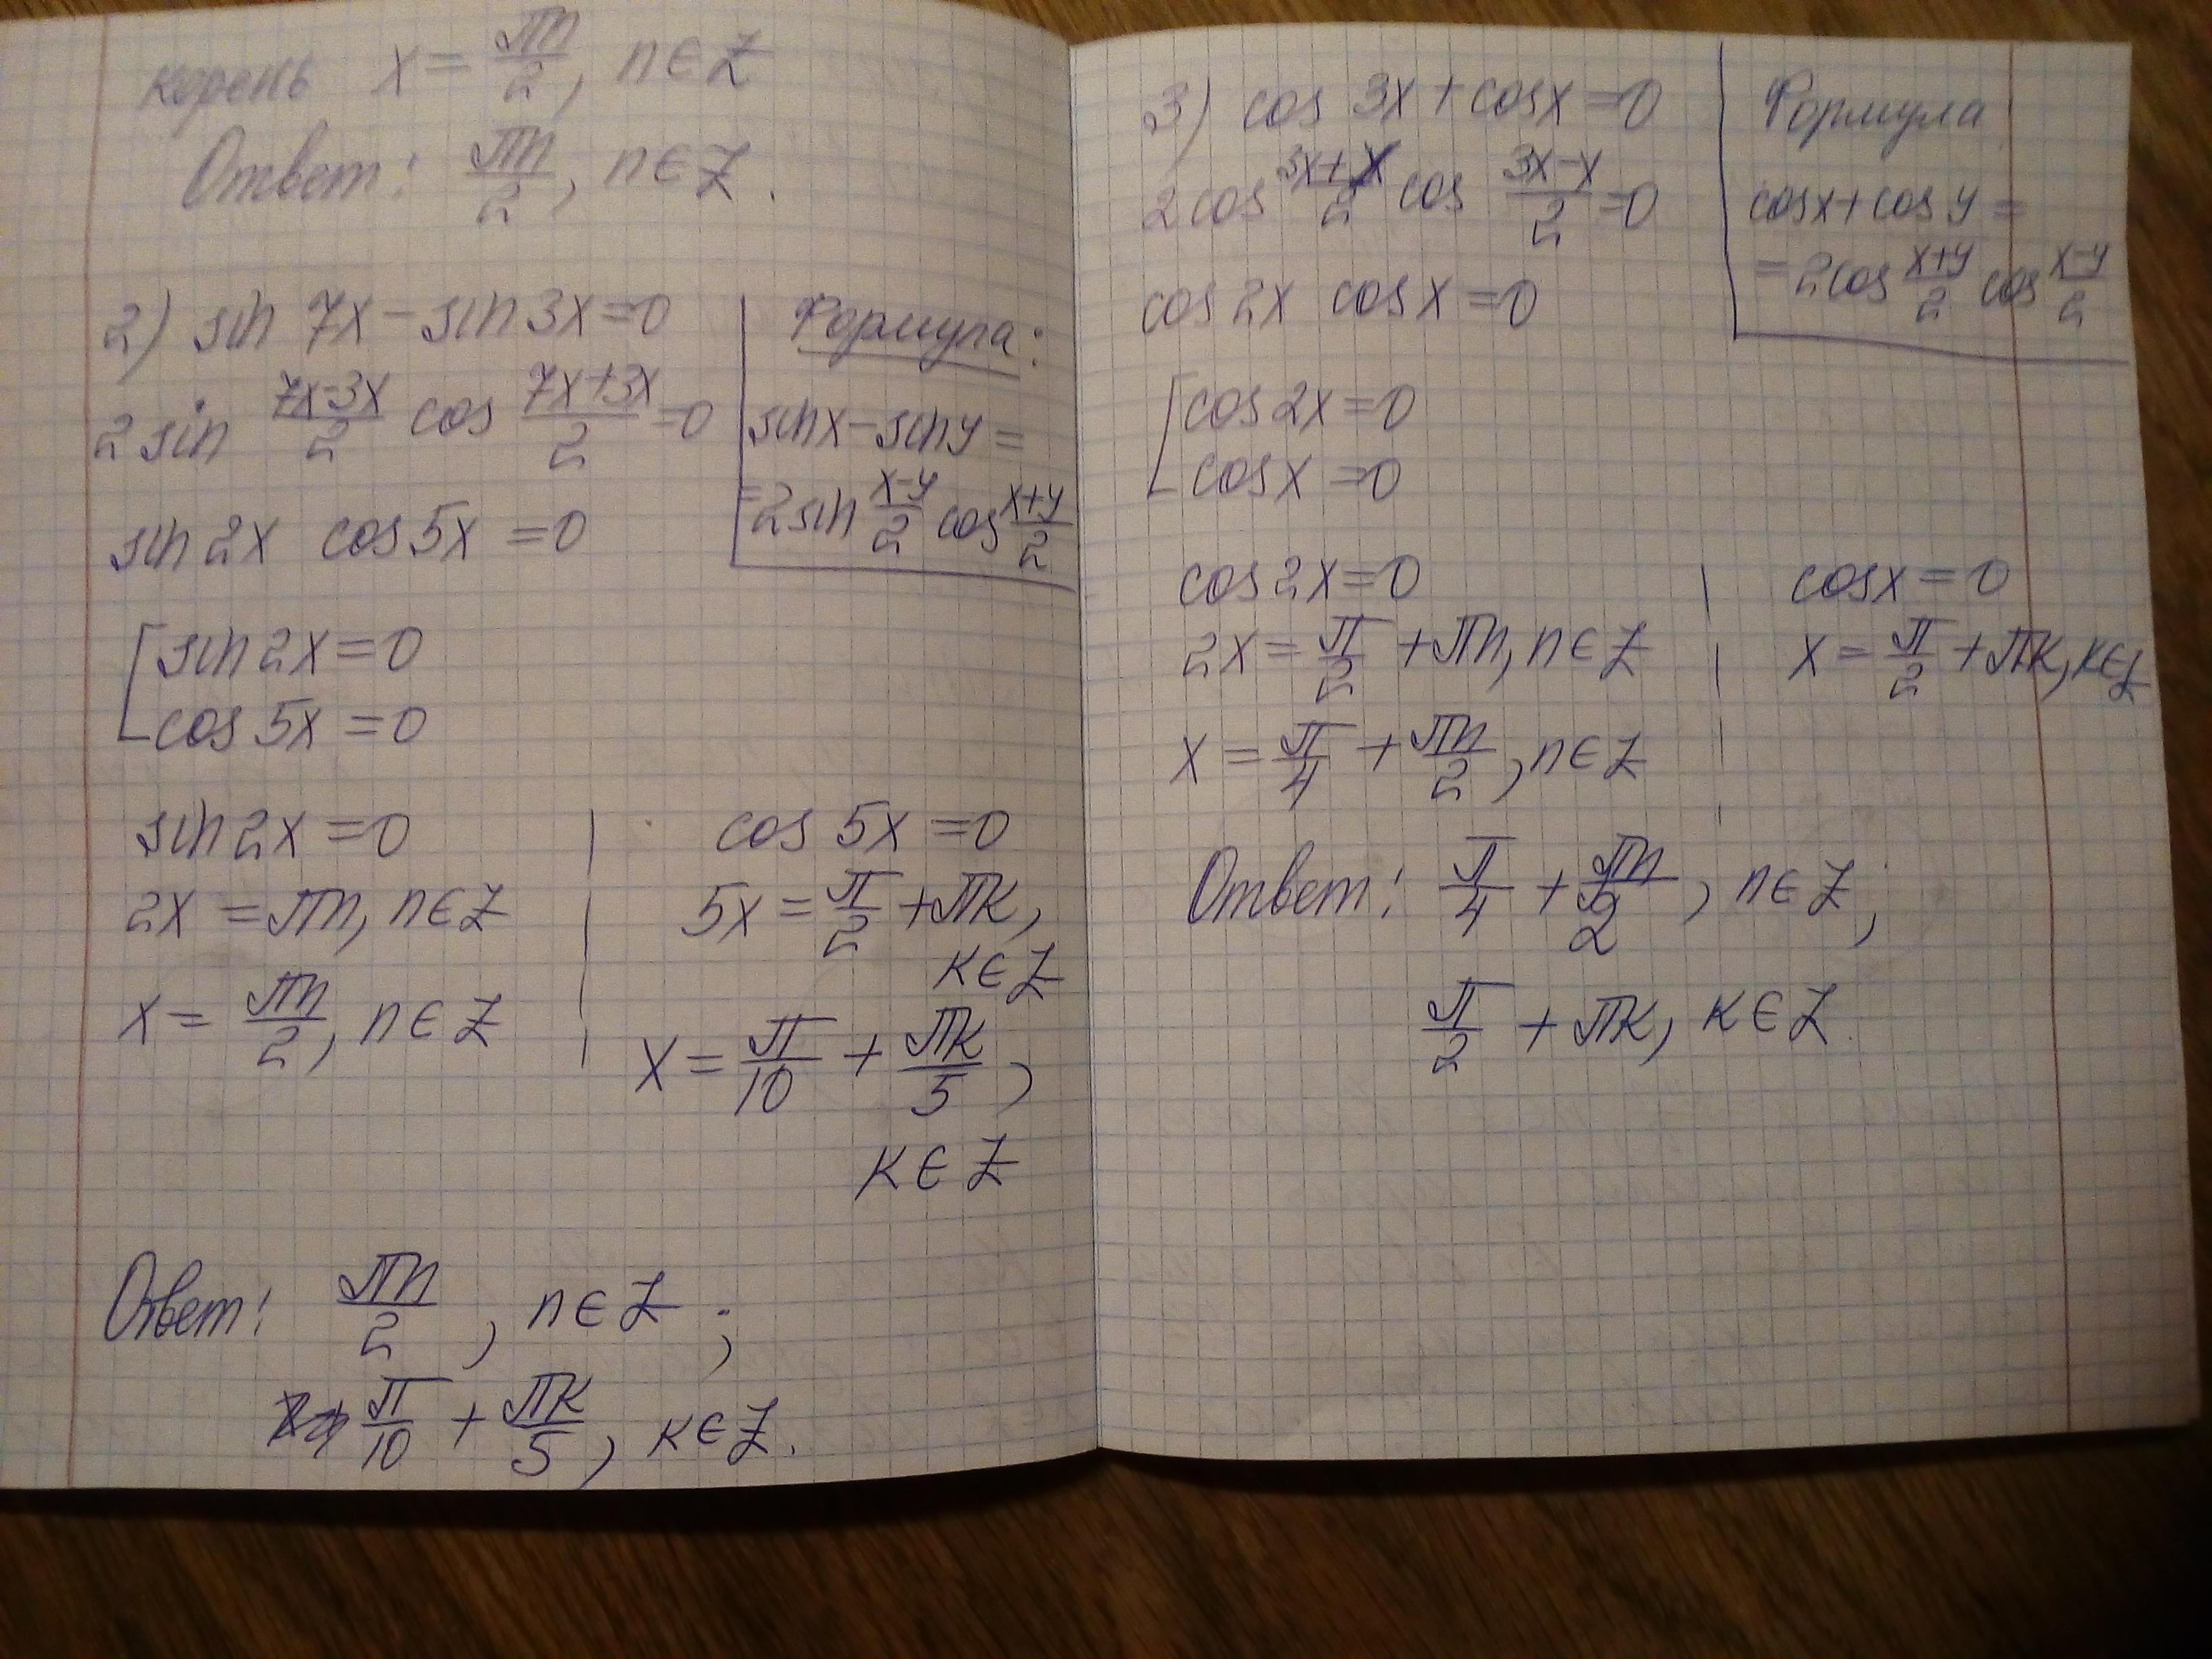 корень x = πn/2, n∈Z
Ответ: πn/2, n∈Z.
2) sin 7x - sin 3x = 0
2 sin (7x-3x)/2 cos (7x+3x)/2 = 0
sin 2x cos 5x = 0
Формула:
sin x - sin y =
= 2 sin (x-y)/2 cos (x+y)/2
[ sin 2x = 0
cos 5x = 0
sin 2x = 0
2x = πn, n∈Z
x = πn/2, n∈Z
cos 5x = 0
5x = π/2 + πк,
к∈Z
x = π/10 + πк/5,
к∈Z
Ответ: πn/2, n∈Z;
π/10 + πк/5, к∈Z.
3) cos 3x + cos x = 0
2 cos (3x+x)/2 cos (3x-x)/2 = 0
cos 2x cos x = 0
Формула
cos x + cos y =
= 2 cos (x+y)/2 cos (x-y)/2
[ cos 2x = 0
cos x = 0
cos 2x = 0
2x = π/2 + πn, n∈Z
x = π/4 + πn/2, n∈Z
cos x = 0
x = π/2 + πк, к∈Z
Ответ: π/4 + πn/2, n∈Z;
π/2 + πк, к∈Z.